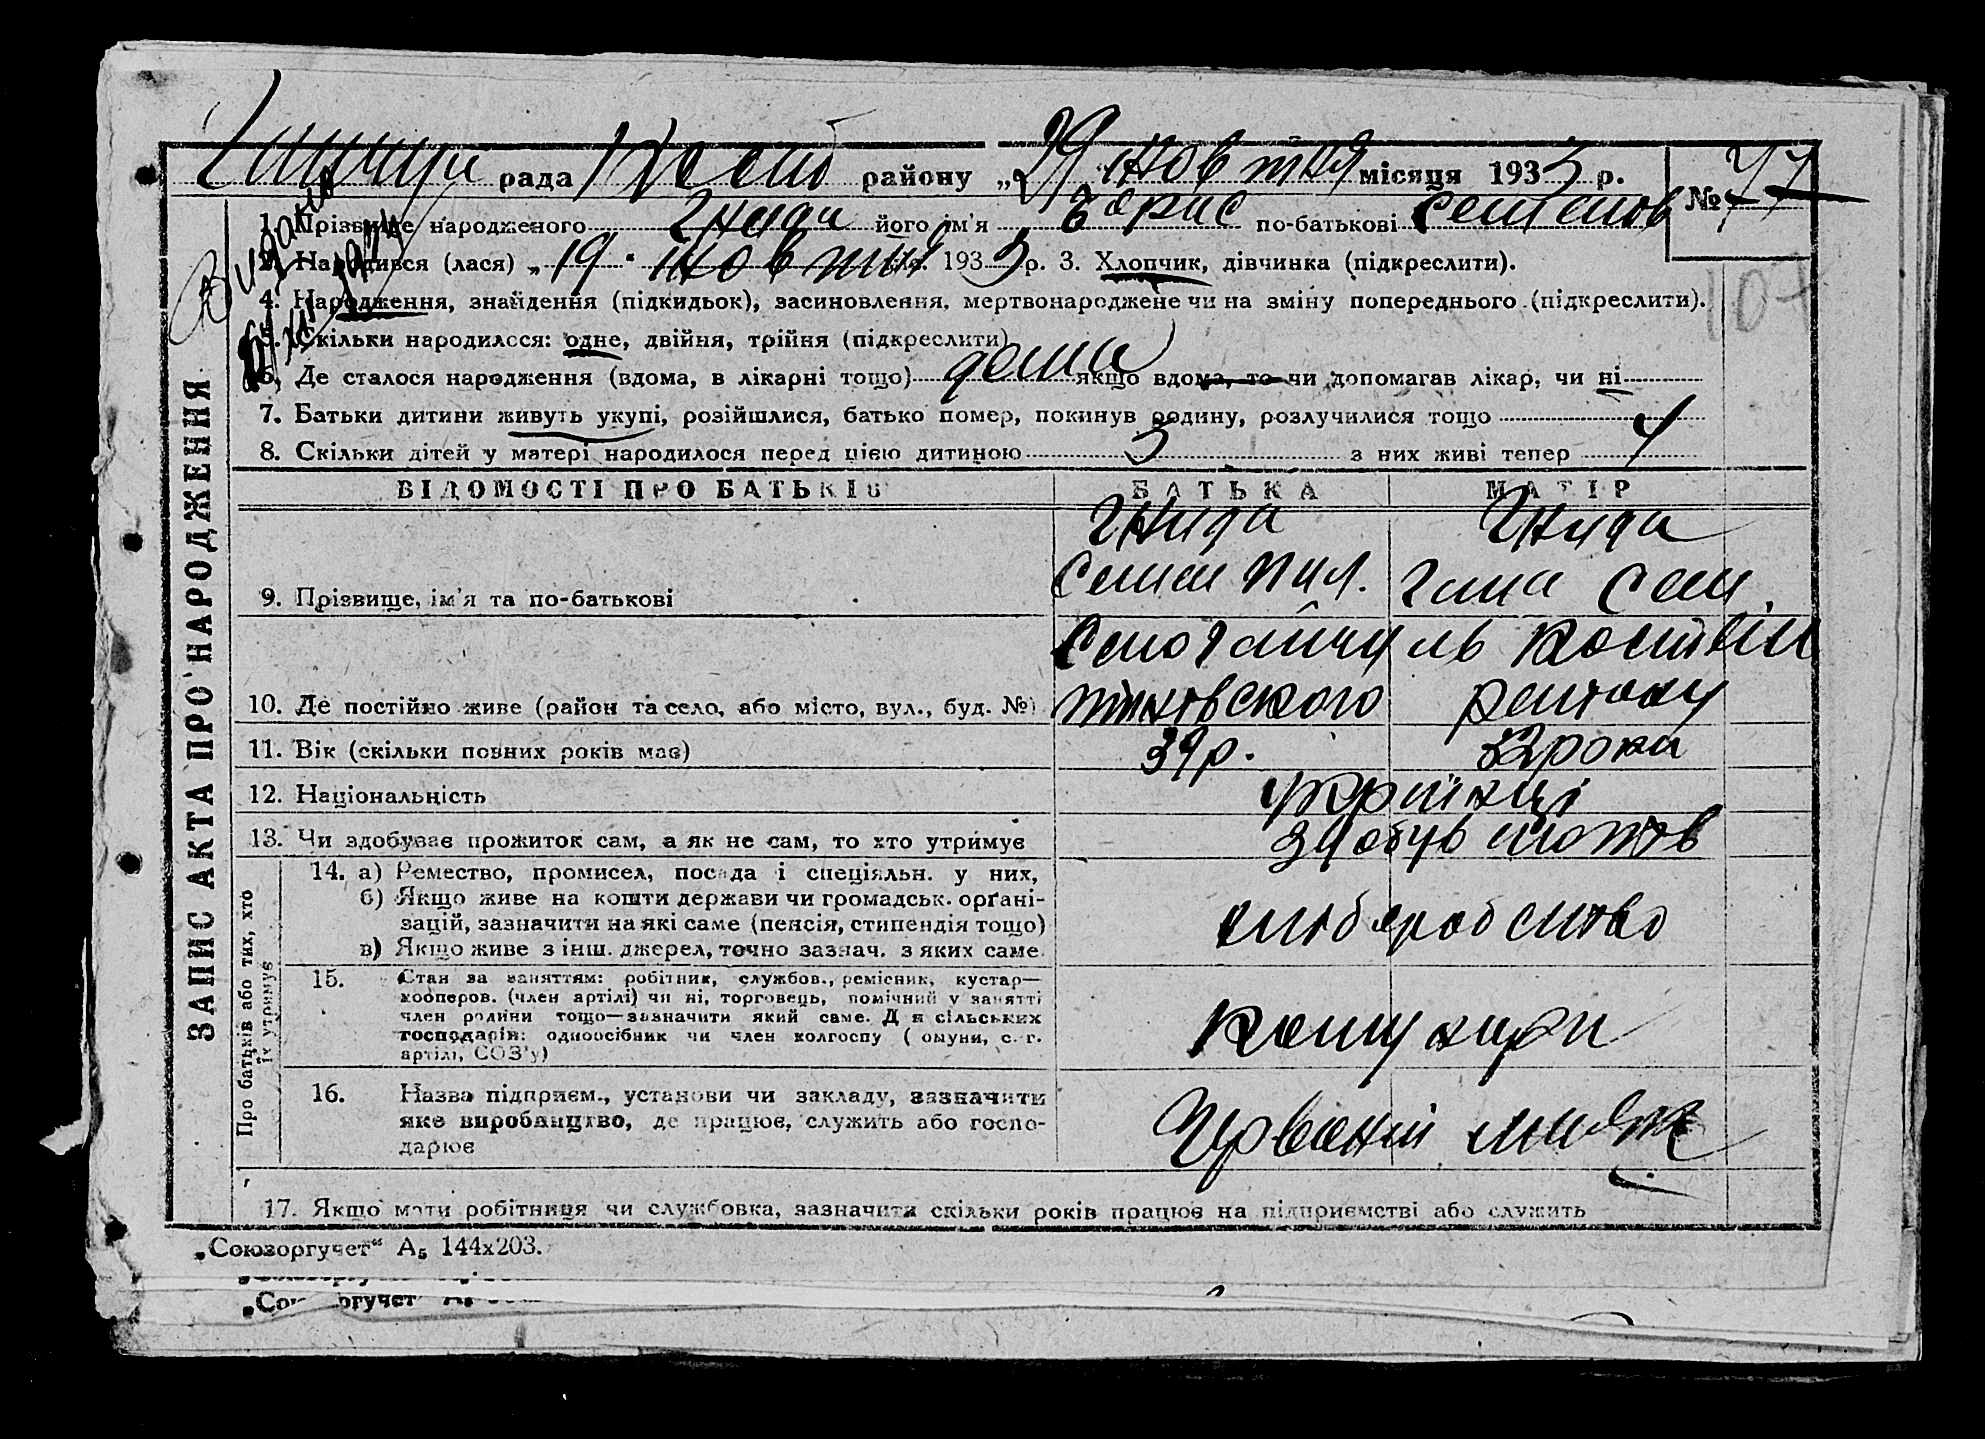 рада району „29 жовтня місяця 1933 р.
№ 77
1. Прізвище народженого Гнида його ім'я Борис по-батькові Семенов
2. Народився (лася) „19 жовтня 1933 р. 3. Хлопчик, дівчинка (підкреслити).
4. Народження, знайдення (підкидьок), засиновлення, мертвонароджене чи на зміну попереднього (підкреслити).
107
5. Скільки народилося: одне, двійня, трійня (підкреслити)
6. Де сталося народження (вдома, в лікарні тощо) дома якщо вдома, то чи допомагав лікар, чи ні
7. Батьки дитини живуть укупі, розійшлися, батько помер, покинув родину, розлучилися тощо
8. Скільки дітей у матері народилося перед цією дитиною 5 з них живі тепер 4
Видано
ЗАПИС АКТА ПРО НАРОДЖЕННЯ
ВІДОМОСТІ ПРО БАТЬКІВ БАТЬКА МАТІР
Гнида Гнида
9. Прізвище, ім'я та по-батькові Семен Пил. Ганна Сем.
Село
10. Де постійно живе (район та село, або місто, вул., буд. №)
11. Вік (скільки повних років має) 39 р. 32 роки
12. Національність Українці
13. Чи здобуває прожиток сам, а як не сам, то хто утримує
Про батьків або тих, хто їх утримує
14. а) Ремество, промисел, посада і спеціяльн. у них,
б) Якщо живе на кошти держави чи громадськ. орґані-
зацій, зазначити на які саме (пенсія, стипендія тощо)
в) Якщо живе з інш. джерел, точно зазнач. з яких саме
хліборобство
15. Стан за заняттям: робітник, службов., ремісник, кустар—
кооперов. (член артілі) чи ні, торговець, помічний у занятті
член родини тощо—зазначити який саме. Для сільських
господарів: одноосібник чи член колгоспу (комуни, с.-г.
артілі, СОЗ'у)
16. Назва підприєм., установи чи закладу, зазначити
яке виробництво, де працює, служить або госпо-
дарює
Червоний маяк
17. Якщо мати робітниця чи службовка, зазначити скільки років працює на підприємстві або служить
„Союзоргучет“ А₅ 144х203.